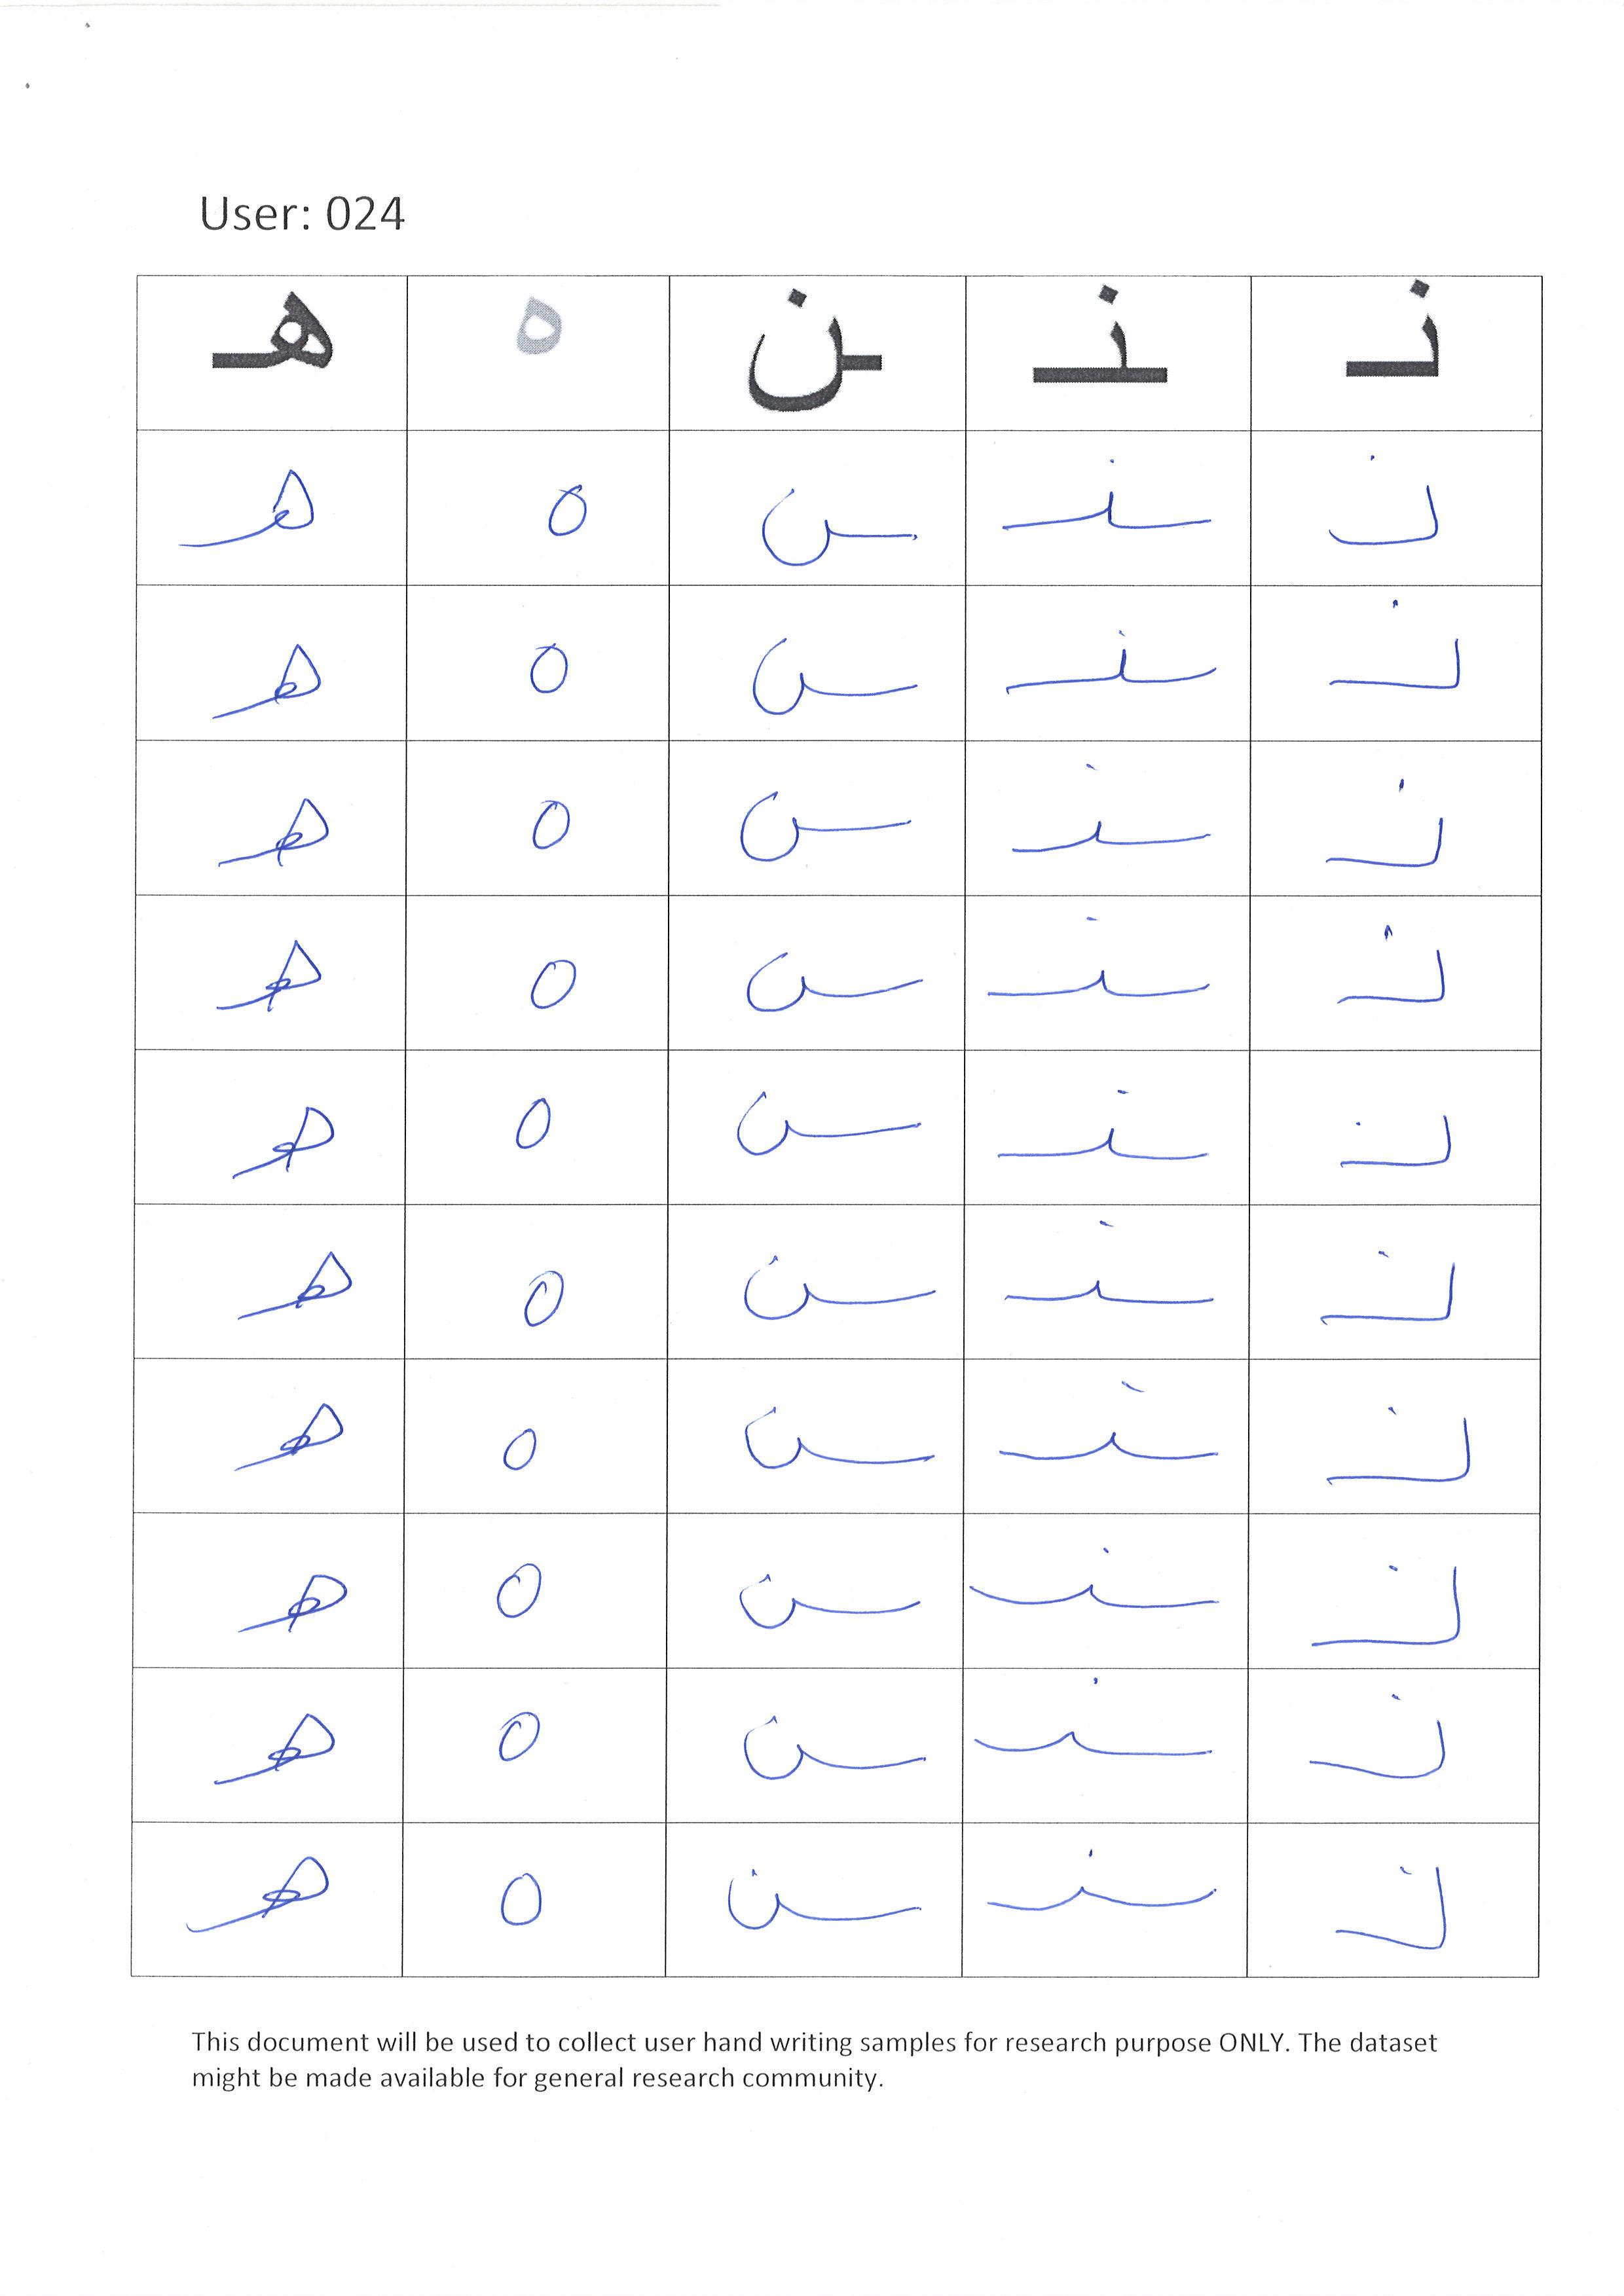 User: 024
نـ ـنـ ـن ه هـ
نـ ـنـ ـن ه هـ
نـ ـنـ ـن ه هـ
نـ ـنـ ـن ه هـ
نـ ـنـ ـن ه هـ
نـ ـنـ ـن ه هـ
نـ ـنـ ـن ه هـ
نـ ـنـ ـن ه هـ
نـ ـنـ ـن ه هـ
نـ ـنـ ـن ه هـ
نـ ـنـ ـن ه هـ
This document will be used to collect user hand writing samples for research purpose ONLY. The dataset
might be made available for general research community.